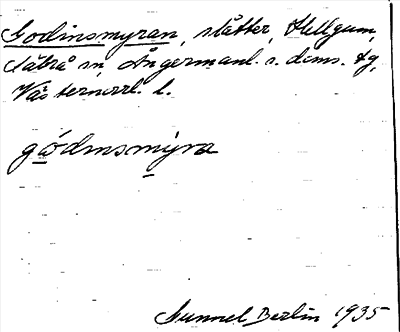 Godinsmyran, slåtter, Hellgum,
Säbrå sn, Ångermanl. s. doms. tg,
Västernorrl. l.
gódmsmýra
Gunnel Berlin 1935